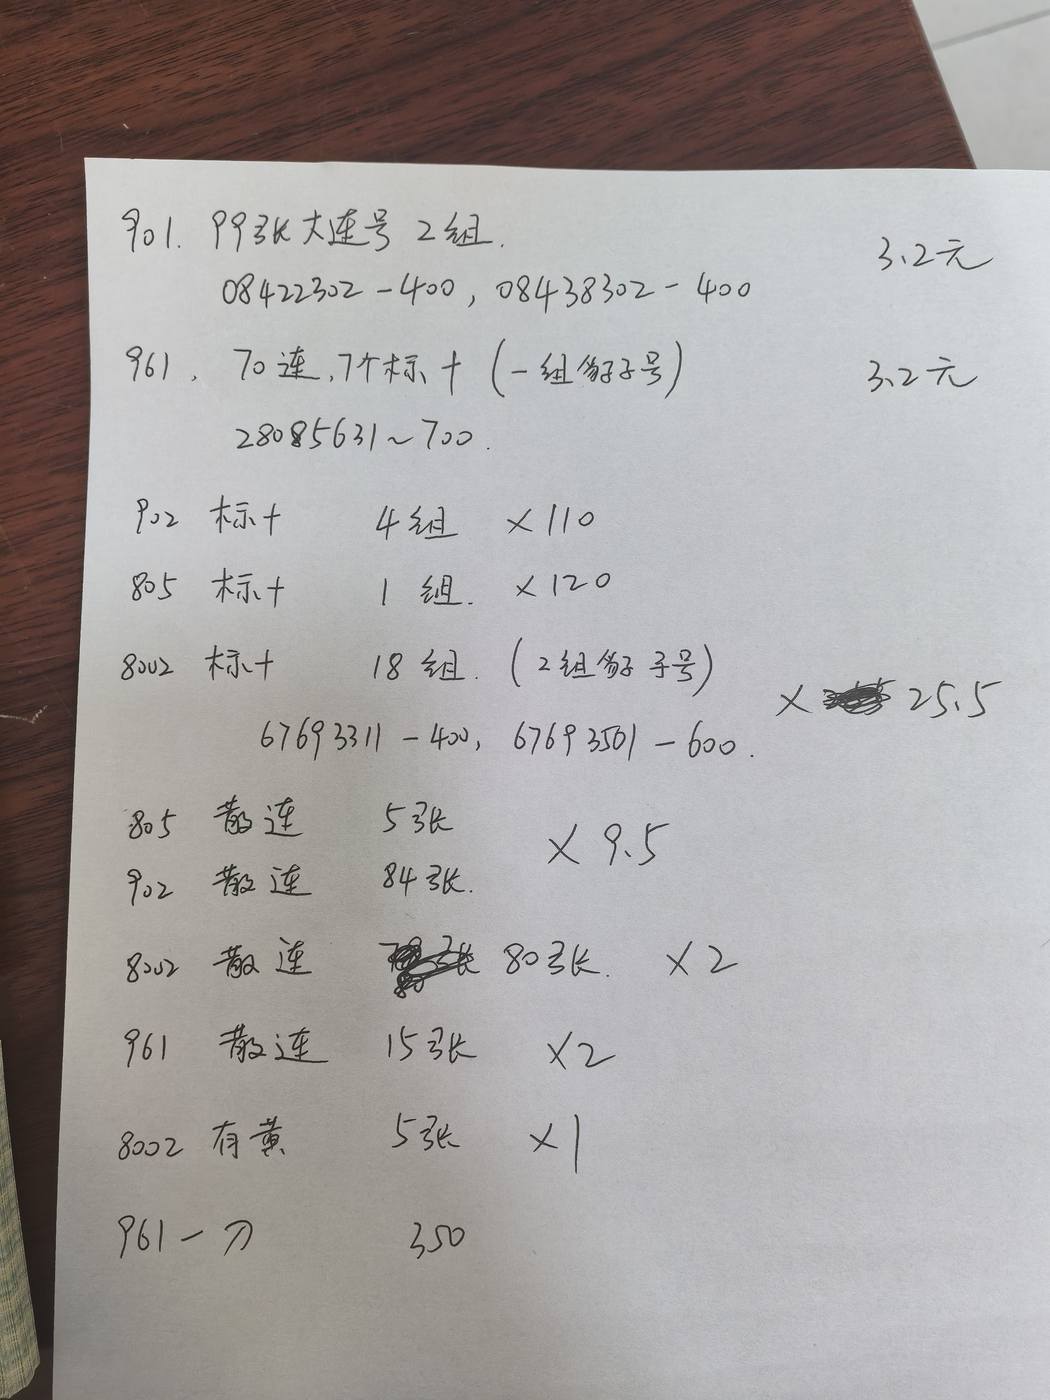 901. 99张大连号 2组. 3.2元
08422302-400, 08438302-400
961. 70连,7个标十 (一组豹子号) 3.2元
28085631~700.
902 标十 4组 ×110
805 标十 1组. ×120
8002 标十 18组. (2组豹子号)
× 25.5
67693311-400, 67693501-600.
805 散连 5张
× 9.5
902 散连 84张.
8002 散连 80张. ×2
961 散连 15张 ×2
8002 有黄 5张 ×1
961一刀 350